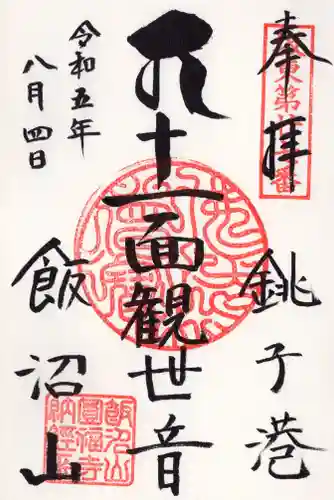 奉拝
坂東第廿七番
銚子港
十一面観世音
令和五年
八月四日
飯沼山
飯沼山
圓福寺
納経之印